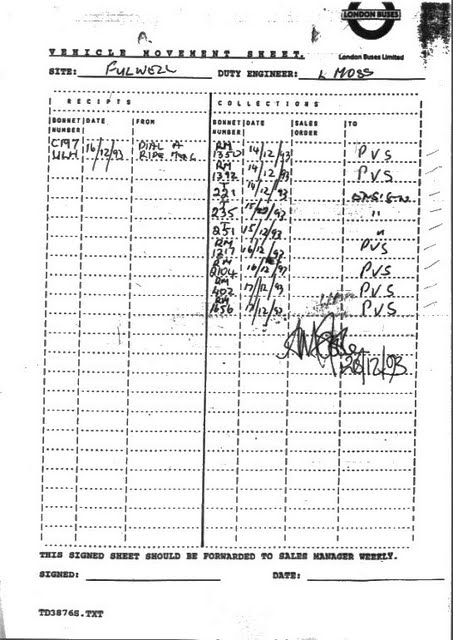 LONDON BUSES
A.
VEHICLE MOVEMENT SHEET.
London Buses Limited
SITE: FULWELL DUTY ENGINEER: L MOSS
RECEIPTS COLLECTIONS
BONNET NUMBER DATE FROM BONNET NUMBER DATE SALES ORDER TO
C197 WLH 16/12/93 DIAL A RIDE RM 1350 14/12/93 PVS
RM 1392 14/12/93 PVS
T 221 14/12/93
T 235 15/12/93 "
T 251 15/12/93 "
RM 1217 16/12/93 PVS
RM 2104 16/12/93 PVS
RM 402 17/12/93 PVS
RM 1656 17/12/93 PVS
20/12/93
THIS SIGNED SHEET SHOULD BE FORWARDED TO SALES MANAGER WEEKLY.
SIGNED: DATE:
TD3876S.TXT